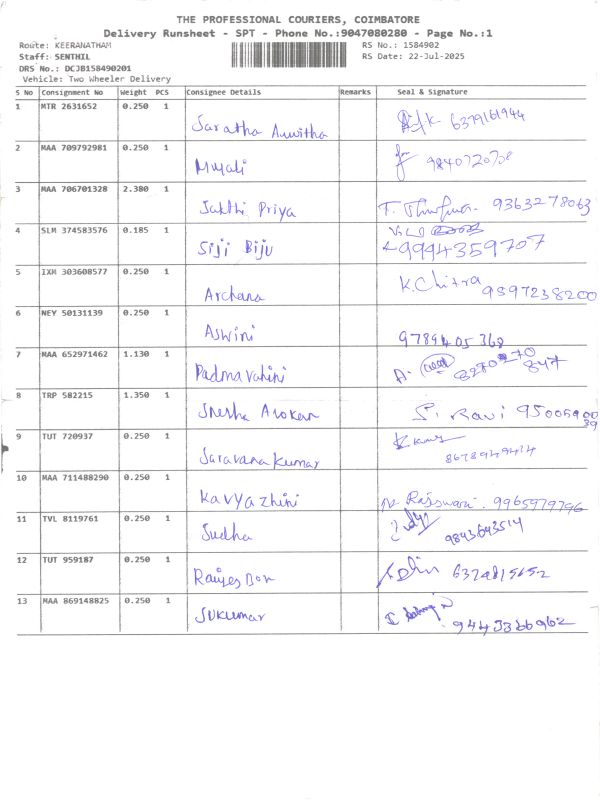 THE PROFESSIONAL COURIERS, COIMBATORE
Delivery Runsheet - SPT - Phone No.:9047080280 - Page No.:1
Route: KEERANATHAM RS No.: 1584902
Staff: SENTHIL RS Date: 22-Jul-2025
DRS No.: DCJB158490201
Vehicle: Two Wheeler Delivery
S No Consignment No Weight PCS Consignee Details Remarks Seal & Signature
1 MTR 2631652 0.250 1 Saratha 6379161944
2 MAA 709792981 0.250 1 9840720708
3 MAA 706701328 2.380 1 Sakthi Priya 9363278063
4 SLM 374583576 0.185 1 Siji Biju 9994359707
5 IXM 303608577 0.250 1 Archana K. Chitra 9597238200
6 NEY 50131139 0.250 1 Aswini 9789405368
7 MAA 652971462 1.130 1 Padmavahini
8 TRP 582215 1.350 1 Snesha Asokan S. Ravi
9 TUT 720937 0.250 1 Saravana Kumar
10 MAA 711488290 0.250 1 Kavyazhini 9965979796
11 TVL 8119761 0.250 1 Sudha 9843643514
12 TUT 959187 0.250 1
13 MAA 869148825 0.250 1 Sukumar 9443366962